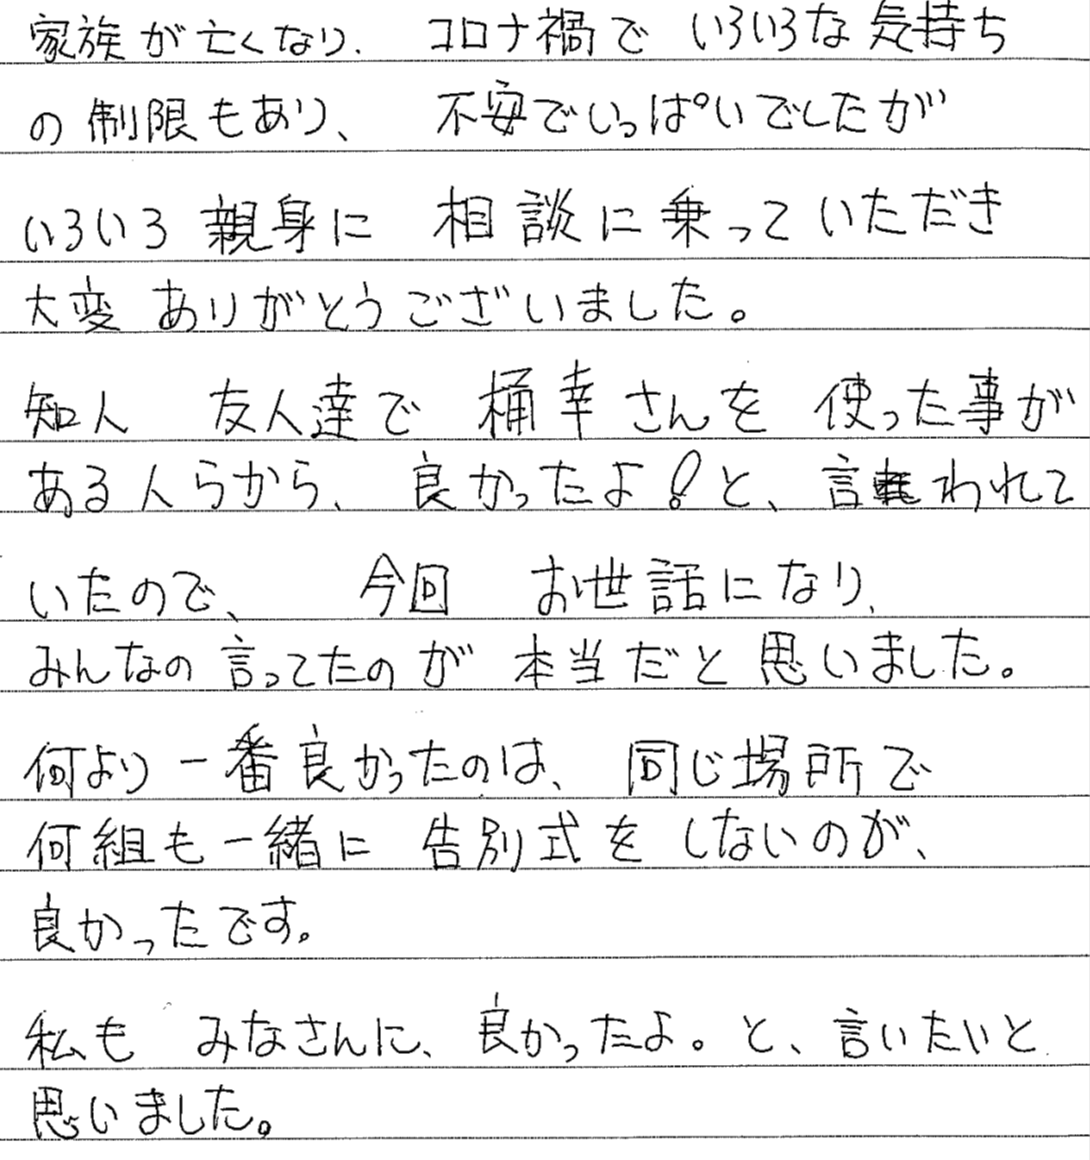 家族が亡くなり、コロナ禍でいろいろな気持ち
の制限もあり、不安でいっぱいでしたが
いろいろ親身に相談に乗っていただき
大変ありがとうございました。
知人 友人達で桶幸さんを使った事が
ある人らから、良かったよ!と、言われて
いたので、今回 お世話になり、
みんなの言ってたのが本当だと思いました。
何より一番良かったのは、同じ場所で
何組も一緒に告別式をしないのが、
良かったです。
私も みなさんに、良かったよ。と、言いたいと
思いました。